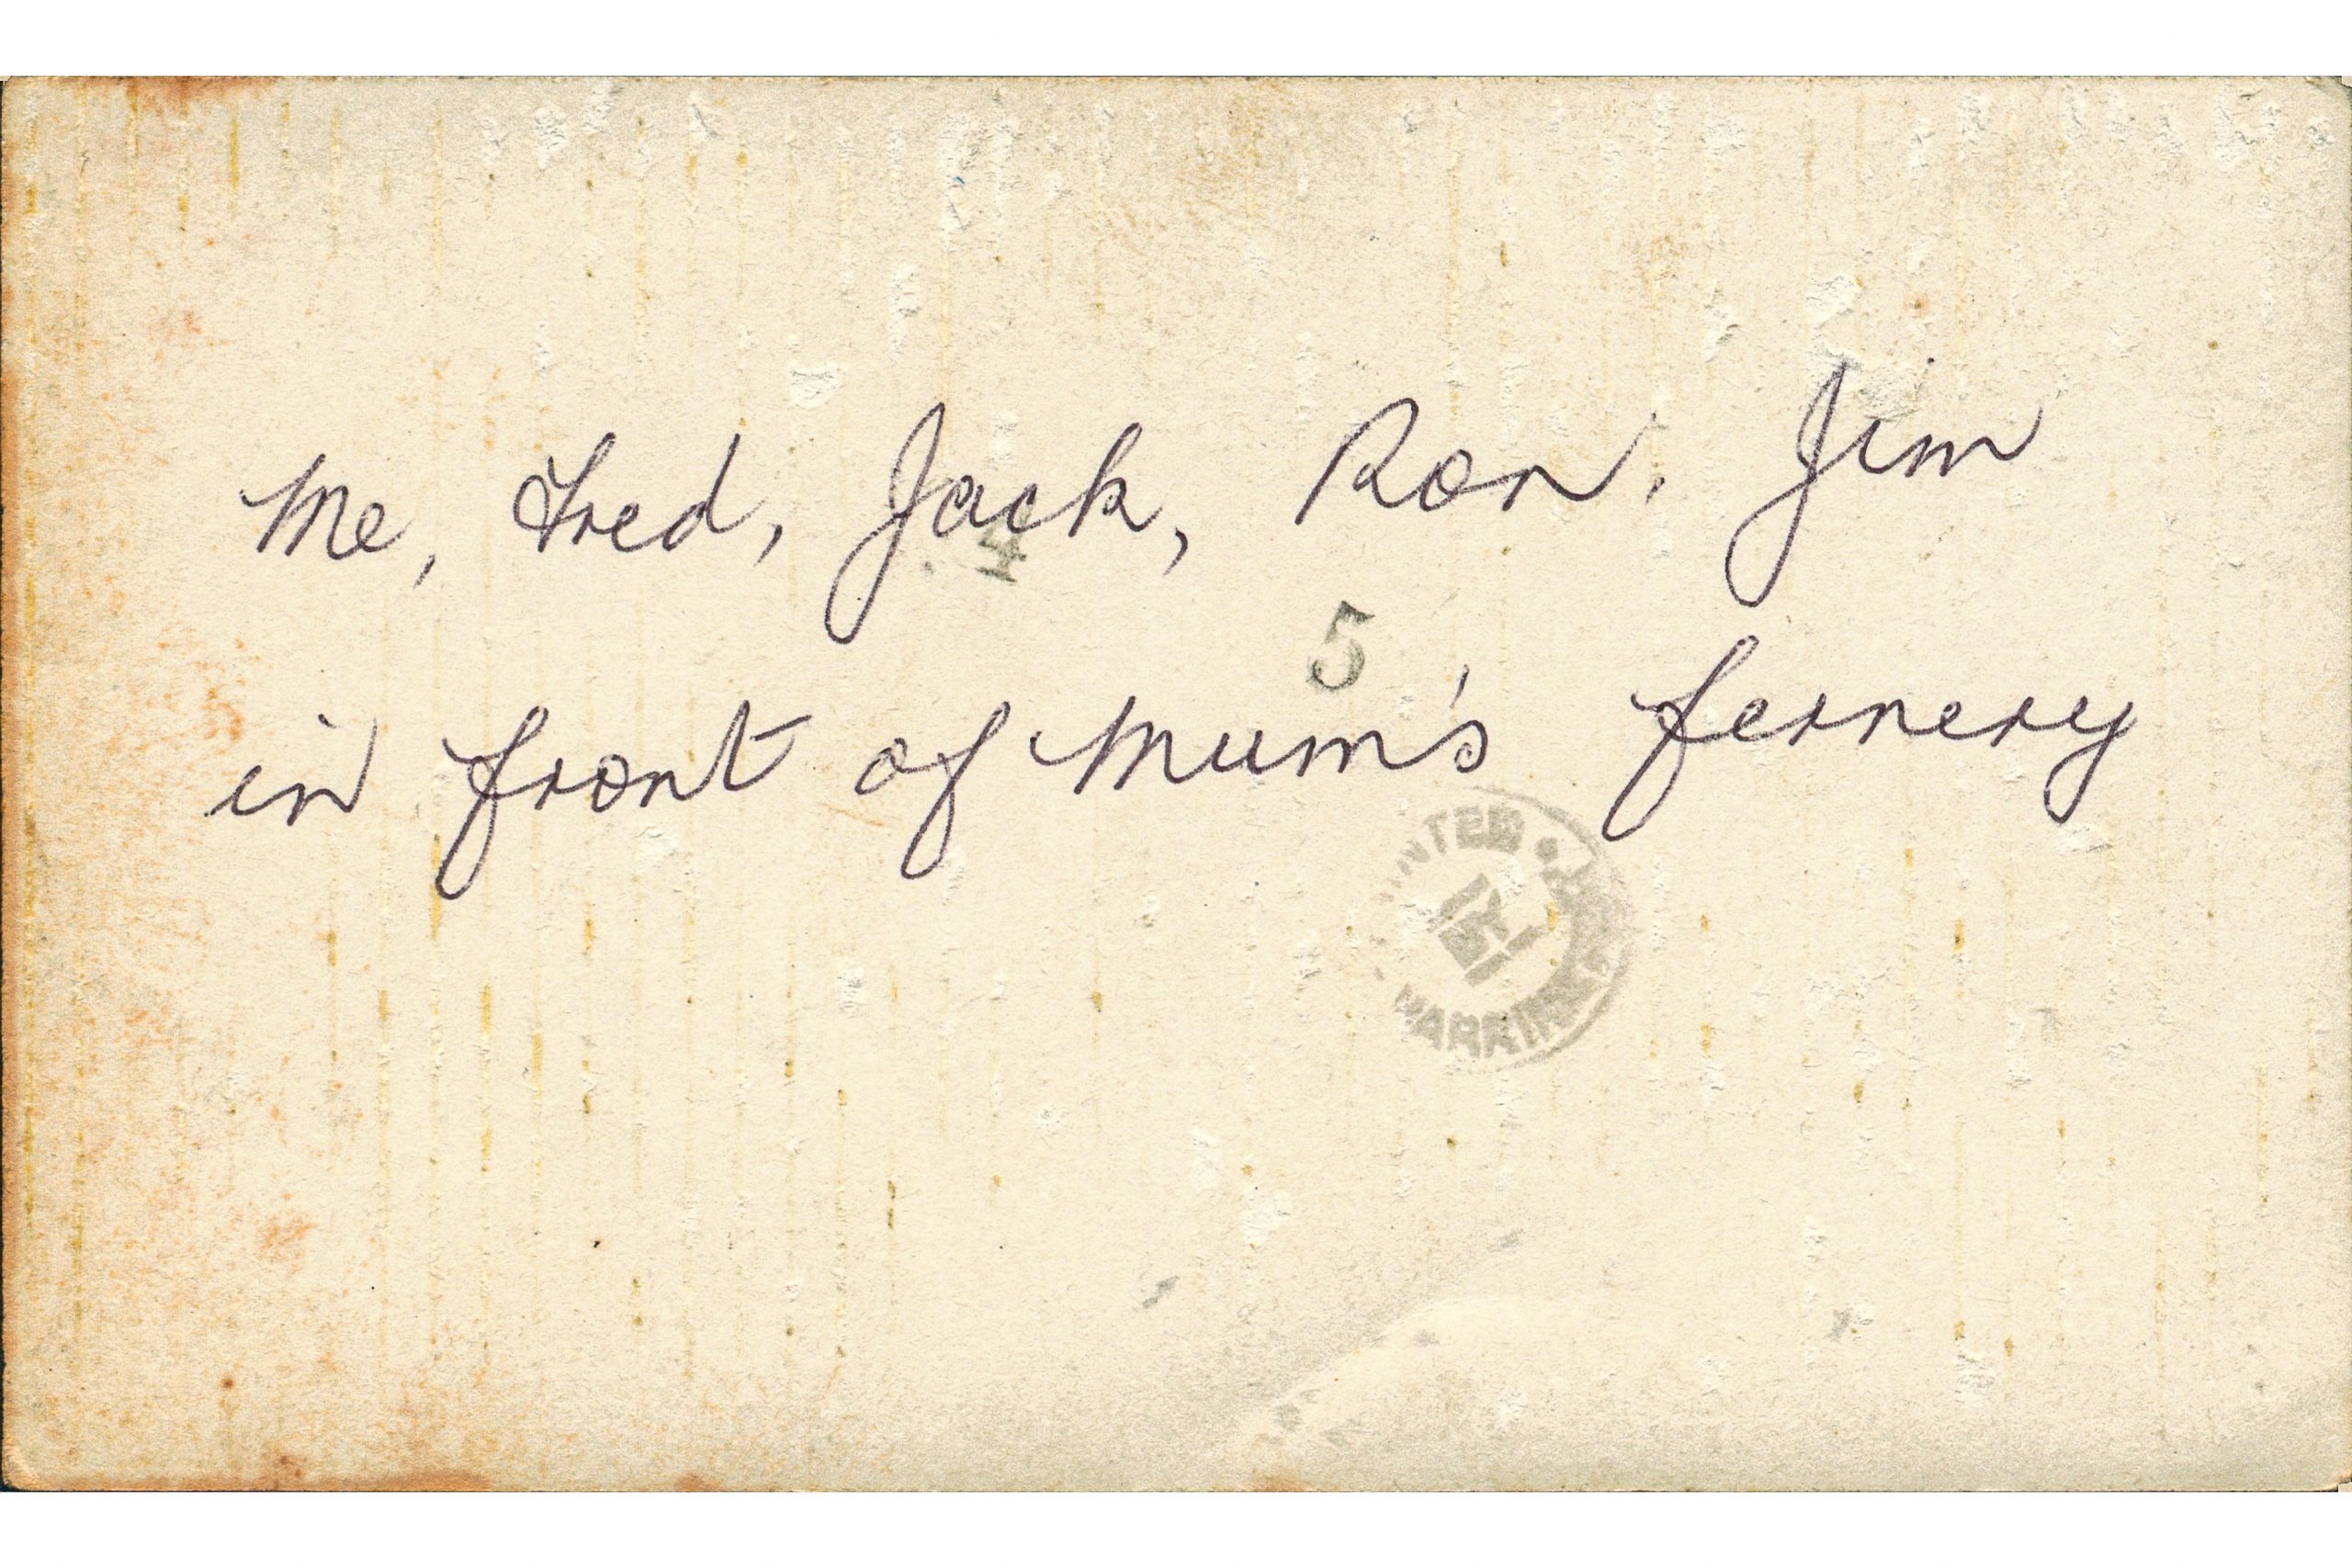 Me, Fred, Jack, Ron, Jim
4
5
in front of Mum's fernery